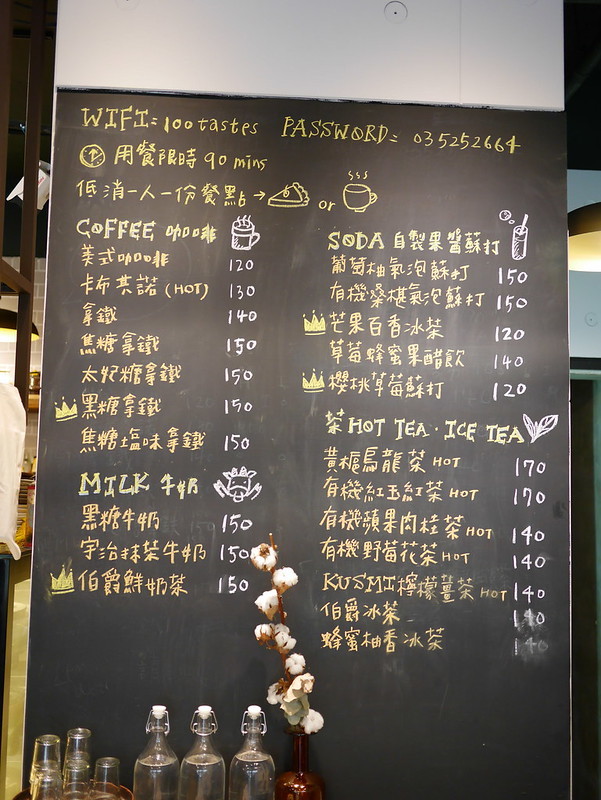 WIFI: 100tastes PASSWORD: 035252664
用餐限時 90 mins
低消一人一份餐點→ or
COFFEE 咖啡
美式咖啡 120
卡布其諾 (HOT) 130
拿鐵 140
焦糖拿鐵 150
太妃糖拿鐵 150
黑糖拿鐵 150
焦糖塩味拿鐵 150
MILK 牛奶
黑糖牛奶 150
宇治抹茶牛奶 150
伯爵鮮奶茶 150
SODA 自製果醬蘇打
葡萄柚氣泡蘇打 150
有機桑椹氣泡蘇打 150
芒果百香冰茶 120
草莓蜂蜜果醋飲 140
櫻桃草莓蘇打 120
茶 HOT TEA · ICE TEA
黃梔烏龍茶 HOT 170
有機紅玉紅茶 HOT 170
有機蘋果肉桂茶 HOT 140
有機野莓花茶 HOT 140
KUSMI 檸檬薑茶 HOT 140
伯爵冰茶 140
蜂蜜柚香冰茶 140